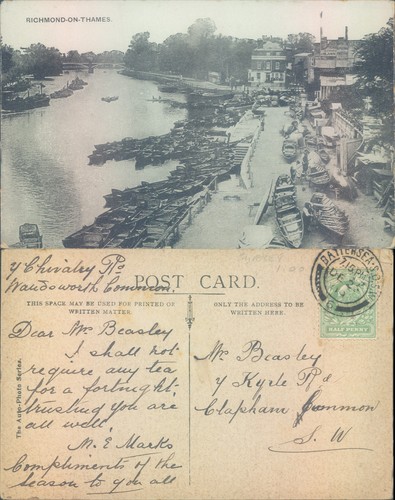 RICHMOND-ON-THAMES.
y Chivalry Rd
Wandsworth Common
POST CARD.
THIS SPACE MAY BE USED FOR PRINTED OR WRITTEN MATTER.
ONLY THE ADDRESS TO BE WRITTEN HERE.
Dear Mr Beasley
I shall not
require any tea
for a fortnight,
trusting you are
all well,
M. E Marks
Compliments of the
season to you all
The Auto-Photo Series.
Mr Beasley
y Kyrle Rd
Clapham Common
S. W
BATTERSEA
HALF PENNY